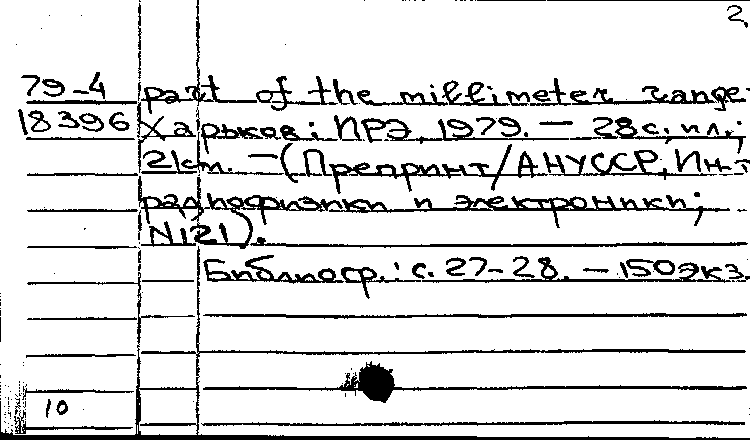 2.
79-4 part of the millimeter range.
18396 Харьков: ИРЭ, 1979. — 28с, ил.;
21см. — (Препринт/АНУССР, Ин-т
радиофизики и электроники;
N121).
Библиогр.: с. 27-28. — 150экз.
10